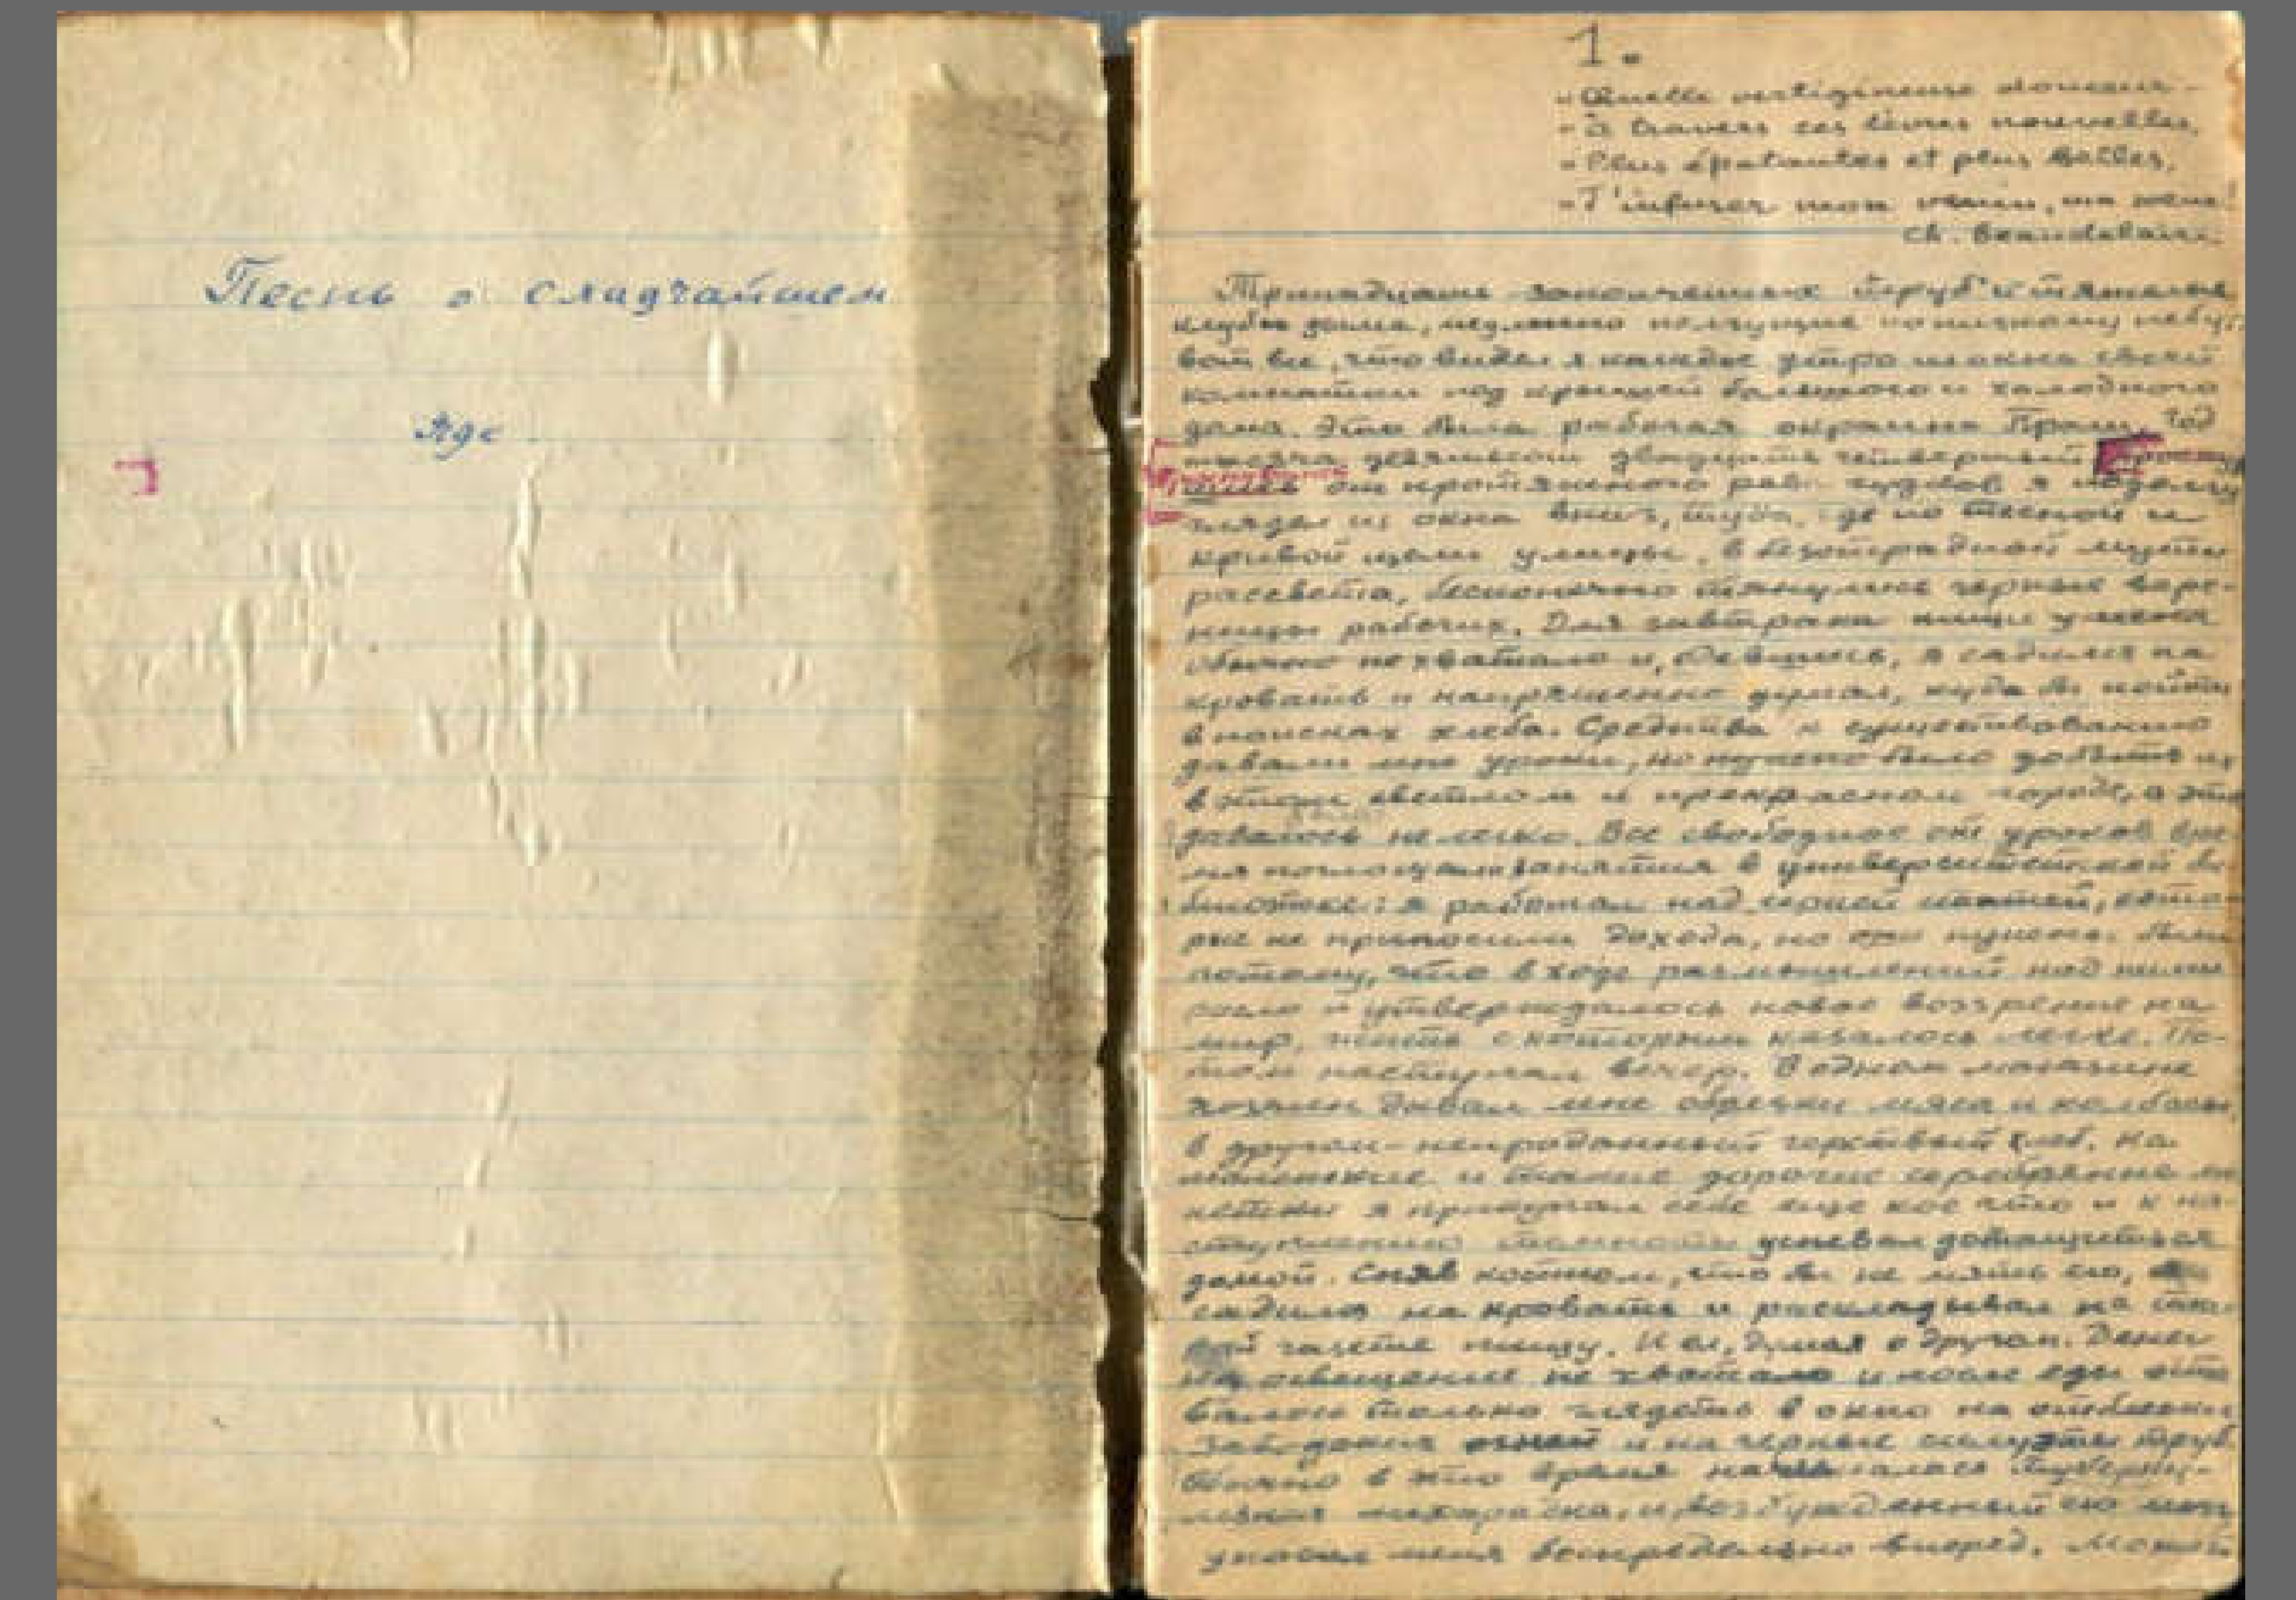 Песнь о сладчайшем
Яде
1.
- Quelle vertigineuse douceur -
- à travers ces lèvres nouvelles,
- Plus épatantes et plus belles,
- T'infuser mon venin, ma soeur!
Ch. Beaudelaire.
Тринадцать закопченных труб и тяжелые
клубы дыма, медленно ползущие по низкому небу:
вот все, что видел я каждое утро из окна своей
комнатки под крышей большого и холодного
дома. Это была рабочая окраина Праги, год
тысяча девятьсот двадцать четвертый
от протяжного рева гудков я подолгу
глядел из окна вниз, туда, где по тесной и
кривой щели улицы, в безотрадной мути
рассвета, бесконечно тянулись черные вере-
ницы рабочих. Для завтрака пищи у меня
обычно не хватало и, одевшись, я садился на
кровать и напряженно думал, куда бы пойти
в поисках хлеба. Средства к существованию
давали мне уроки, но нужно было добыть их
в этом светлом и прекрасном городе, а это
давалось не легко. Все свободное от уроков вре-
мя поглощали занятия в университетской би-
блиотеке: я работал над серией статей, кото-
рые не приносили дохода, но они нужны были
потому, что в ходе размышлений над ними
росло и утверждалось новое воззрение на
мир, жить с которым казалось легче. По-
том наступал вечер. В одном магазине
хозяин давал мне обрезки мяса и колбасы,
в другом - непроданный черствый хлеб. На
маленькие и такие дорогие серебряные мо-
нетки я прикупал себе еще кое что и к на-
ступлению темноты успевал дотащиться
домой. Сняв костюм, что бы не мять его,
садился на кровать и раскладывал на ста-
рой газете пищу. И ел, думая о другом. Денег
на освещение не хватало и после еды оста-
валось только глядеть в окно на отблески
заводских огней и на черные силуэты труб.
Обычно в это время начиналась туберку-
лезная лихорадка, и возбужденный ею мозг
уносил меня беспредельно вперед. Может